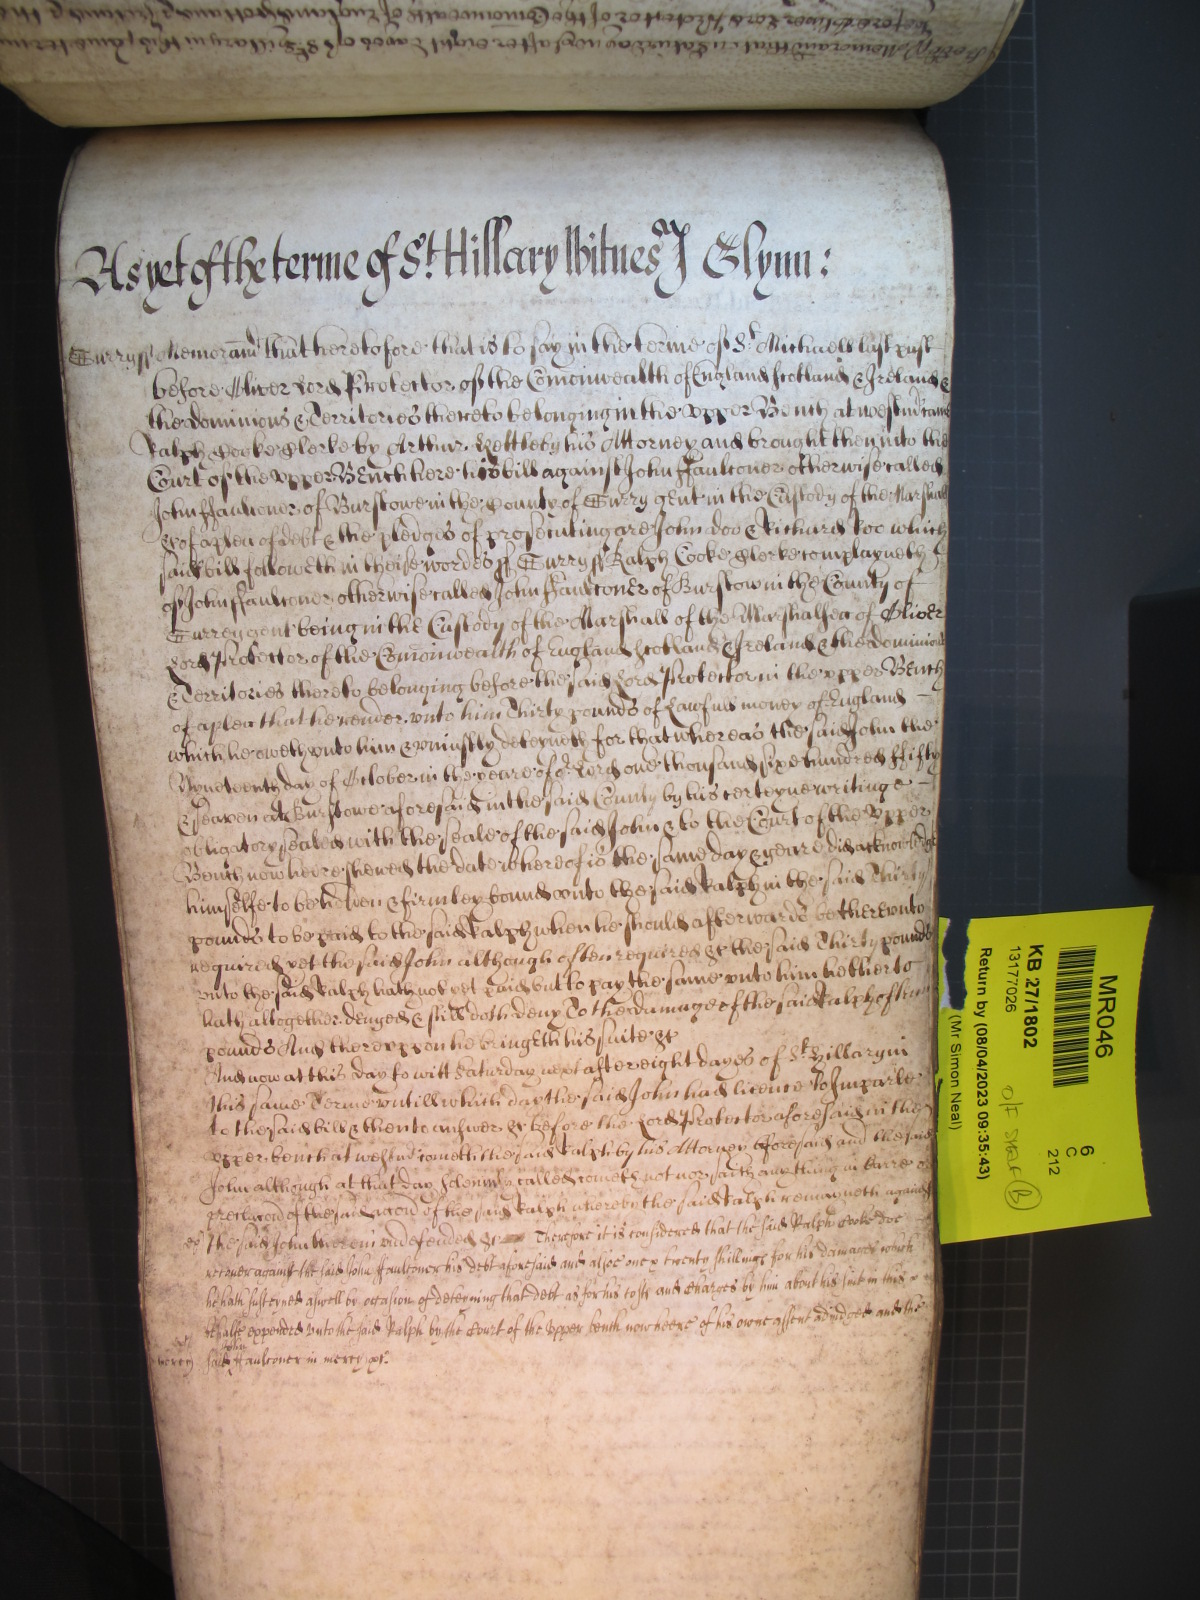 As yet of the terme of St. Hillary Witnes J Glynn:
Surry ss Memorand that heretofore that is to say in the terme of St. Michaell last past
before Oliver Lord Protector of the Comonwealth of England Scotland & Ireland &
the dominions & Territories thereto belonging in the Upper Bench at westm came
Ralph Cooke Clerke by Arthur Kettleby his Attorney and brought then into the
Court of the Upper Bench here his bill against John Faulconer otherwise called
John Faulconer of Burstowe in the County of Surry gent in the Custody of the Marshall
&c of a plea of debt & the pledges of prosecuting are John doo & Richard Roo which
said bill followeth in theise wordes ss Surry ss Ralph Cooke Clerke complayneth
of John Faulconer otherwise called John Faulconer of Burstow in the County of
Surrey gent being in the Custody of the Marshall of the Marshalsea of Oliver
Lord Protector of the Comonwealth of England Scotland & Ireland & the dominions
& Territories thereto belonging before the said Lord Protector in the upper Bench
of a plea that he render unto him Thirty pounds of Lawfull money of England
which he oweth unto him & uniustly deteyneth for that whereas the said John the
Nyneteenth day of October in the yeare of or Lord one thousand sixe hundred fifty
& seaven att Burstowe aforesaid in the said County by his certeyne writing
obligatory sealed with the seale of the said John & to the Court of the Upper
Bench now heere shewed the date whereof is the same day & yeare did acknowledge
himselfe to be holden & firmley bound unto the said Ralph in the said Thirty
pounds to be paid to the said Ralph when he should afterwards be thereunto
required yet the said John although often required &c the said Thirty pounds
unto the said Ralph hath not yet paid but to pay the same unto him hitherto
hath altogether denyed & still doth deny To the damage of the said Ralph of
pounds And thereuppon he bringeth his suite &c
And now at this day to witt Saturday next after eight dayes of St. Hillary in
this same Terme untill which day the said John had licence to Imparle
to the said bill & then to answer &c before the Lord Protector aforesaid in the
upper bench at westm cometh the said Ralph by his Attorney aforesaid and the said
John although at that day solemnly called cometh not nor saith any thing in barre or
preclusion of the said accon of the said Ralph whereby the said Ralph remayneth against
the said John therein undefended &c Therefore it is considered that the said Ralph Cooke doe
recover against the said John Faulconer his debt aforesaid and alsoe one & twenty shillings for his damages which
he hath susteyned aswell by occasion of deteyning that debt as for his costs and charges by him about his suit in this
behalfe expended unto the said Ralph by the Court of the Upper bench now heere of his owne assent adiudged and the
mercy said John Faulconer in mercy &c.
MR046
KB 27/1802
13177026
Return by (08/04/2023 09:35:43)
(Mr Simon Neal)
6
C
212
B